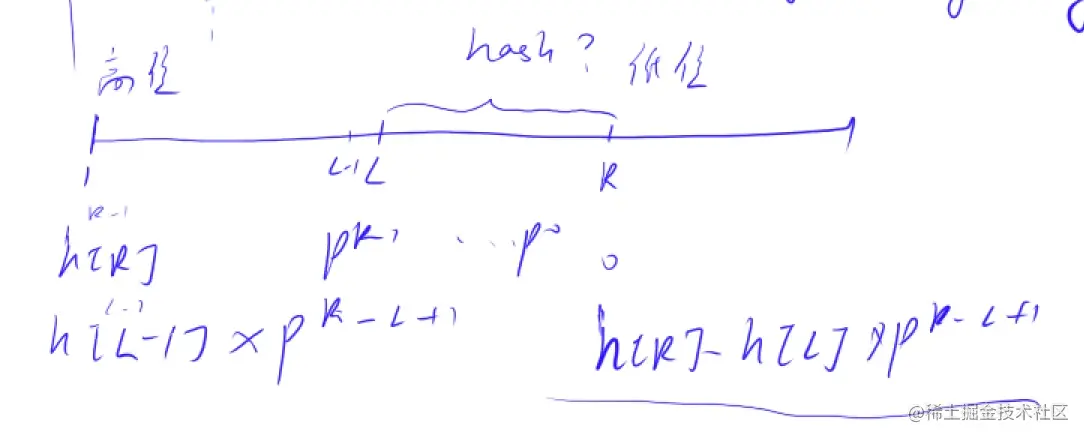 hash?
高位 低位
1 L-1 L R
R-1
h[R] p^{R-1} ... p^0 0
L-1
h[L-1] × p^{R-L+1} h[R]-h[L]×p^{R-L+1}
@稀土掘金技术社区